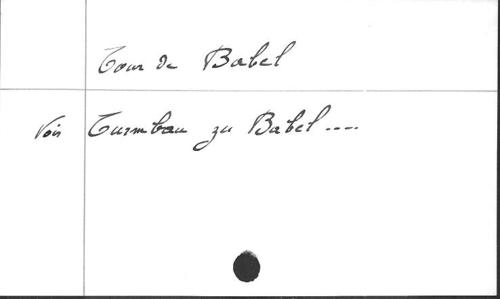 Tour de Babel
Voir Turmbau zu Babel ....